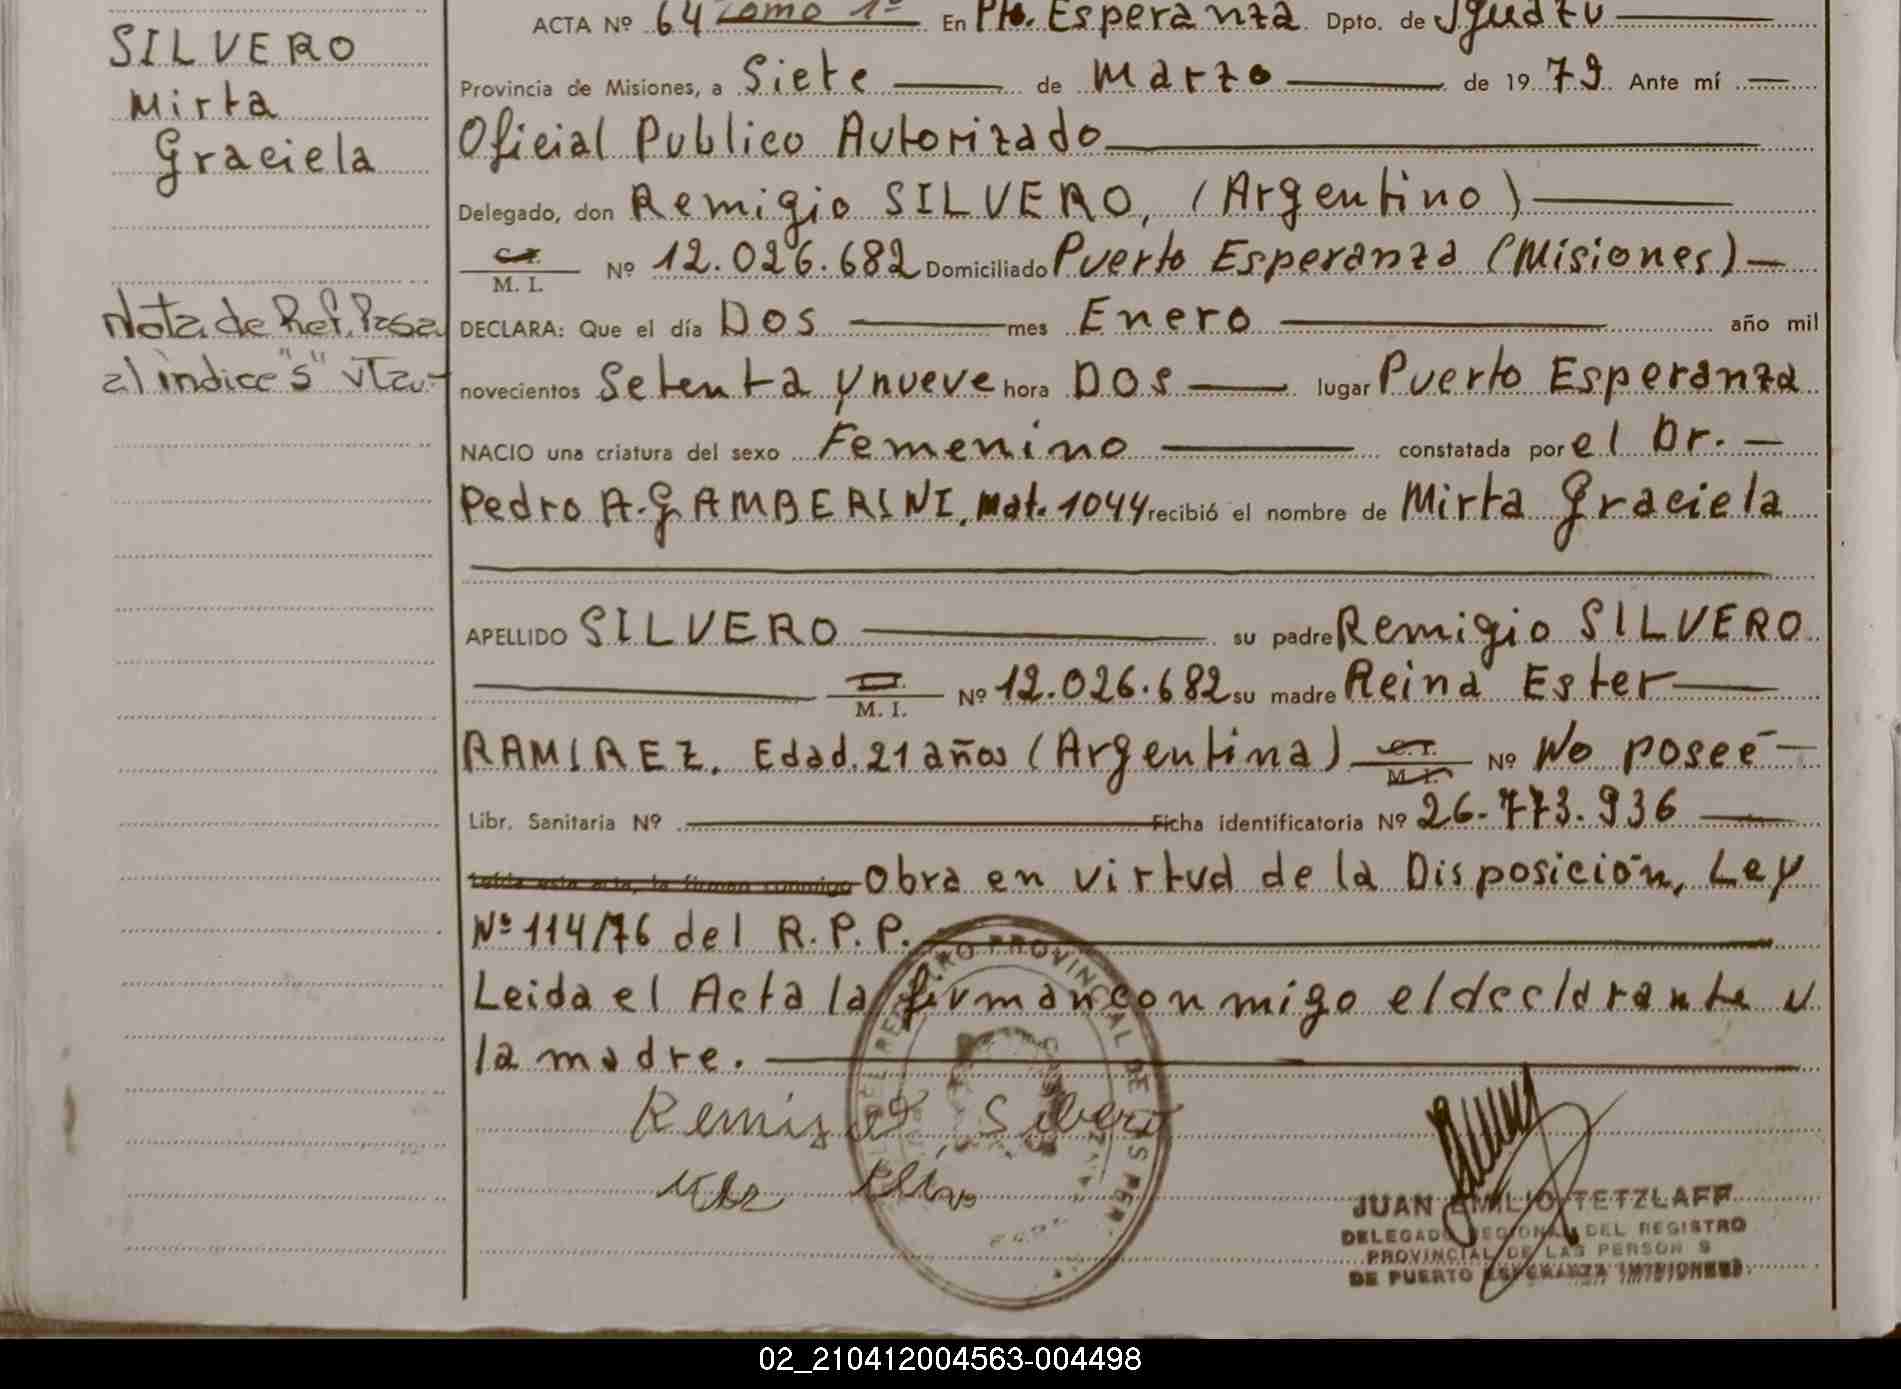 SILVERO
Mirta
Graciela
Nota de Ref. Pasa
al indice "S"
ACTA Nº 64 Tomo 1º En Pto. Esperanza Dpto. de Iguazu
Provincia de Misiones, a Siete de Marzo de 1979 Ante mí
Oficial Publico Autorizado
Delegado, don Remigio SILVERO, (Argentino)
C.I. M. I. Nº 12.026.682 Domiciliado Puerto Esperanza (Misiones)
DECLARA: Que el día Dos mes Enero año mil
novecientos Setenta y nueve hora Dos lugar Puerto Esperanza
NACIO una criatura del sexo Femenino constatada por el Dr.
Pedro A. GAMBERINI, Mat. 1044 recibió el nombre de Mirta Graciela
APELLIDO SILVERO su padre Remigio SILVERO
M. I. Nº 12.026.682 su madre Reina Ester
RAMIREZ. Edad. 21 años (Argentina) C.I. M. I. Nº No poseé
Libr. Sanitaria Nº Ficha identificatoria Nº 26.773.936
Leída esta acta, la firman conmigo Obra en virtud de la Disposición, Ley
Nº 114/76 del R.P.P.
Leida el Acta la firman con migo el declarante y
la madre.
Remigio Silvero
REGISTRO PROVINCIAL DE LAS PER
JUAN EMILIO TETZLAFF
DELEGADO REGIONAL DEL REGISTRO
PROVINCIAL DE LAS PERSON S
DE PUERTO ESPERANZA (MISIONES)
02_210412004563-004498